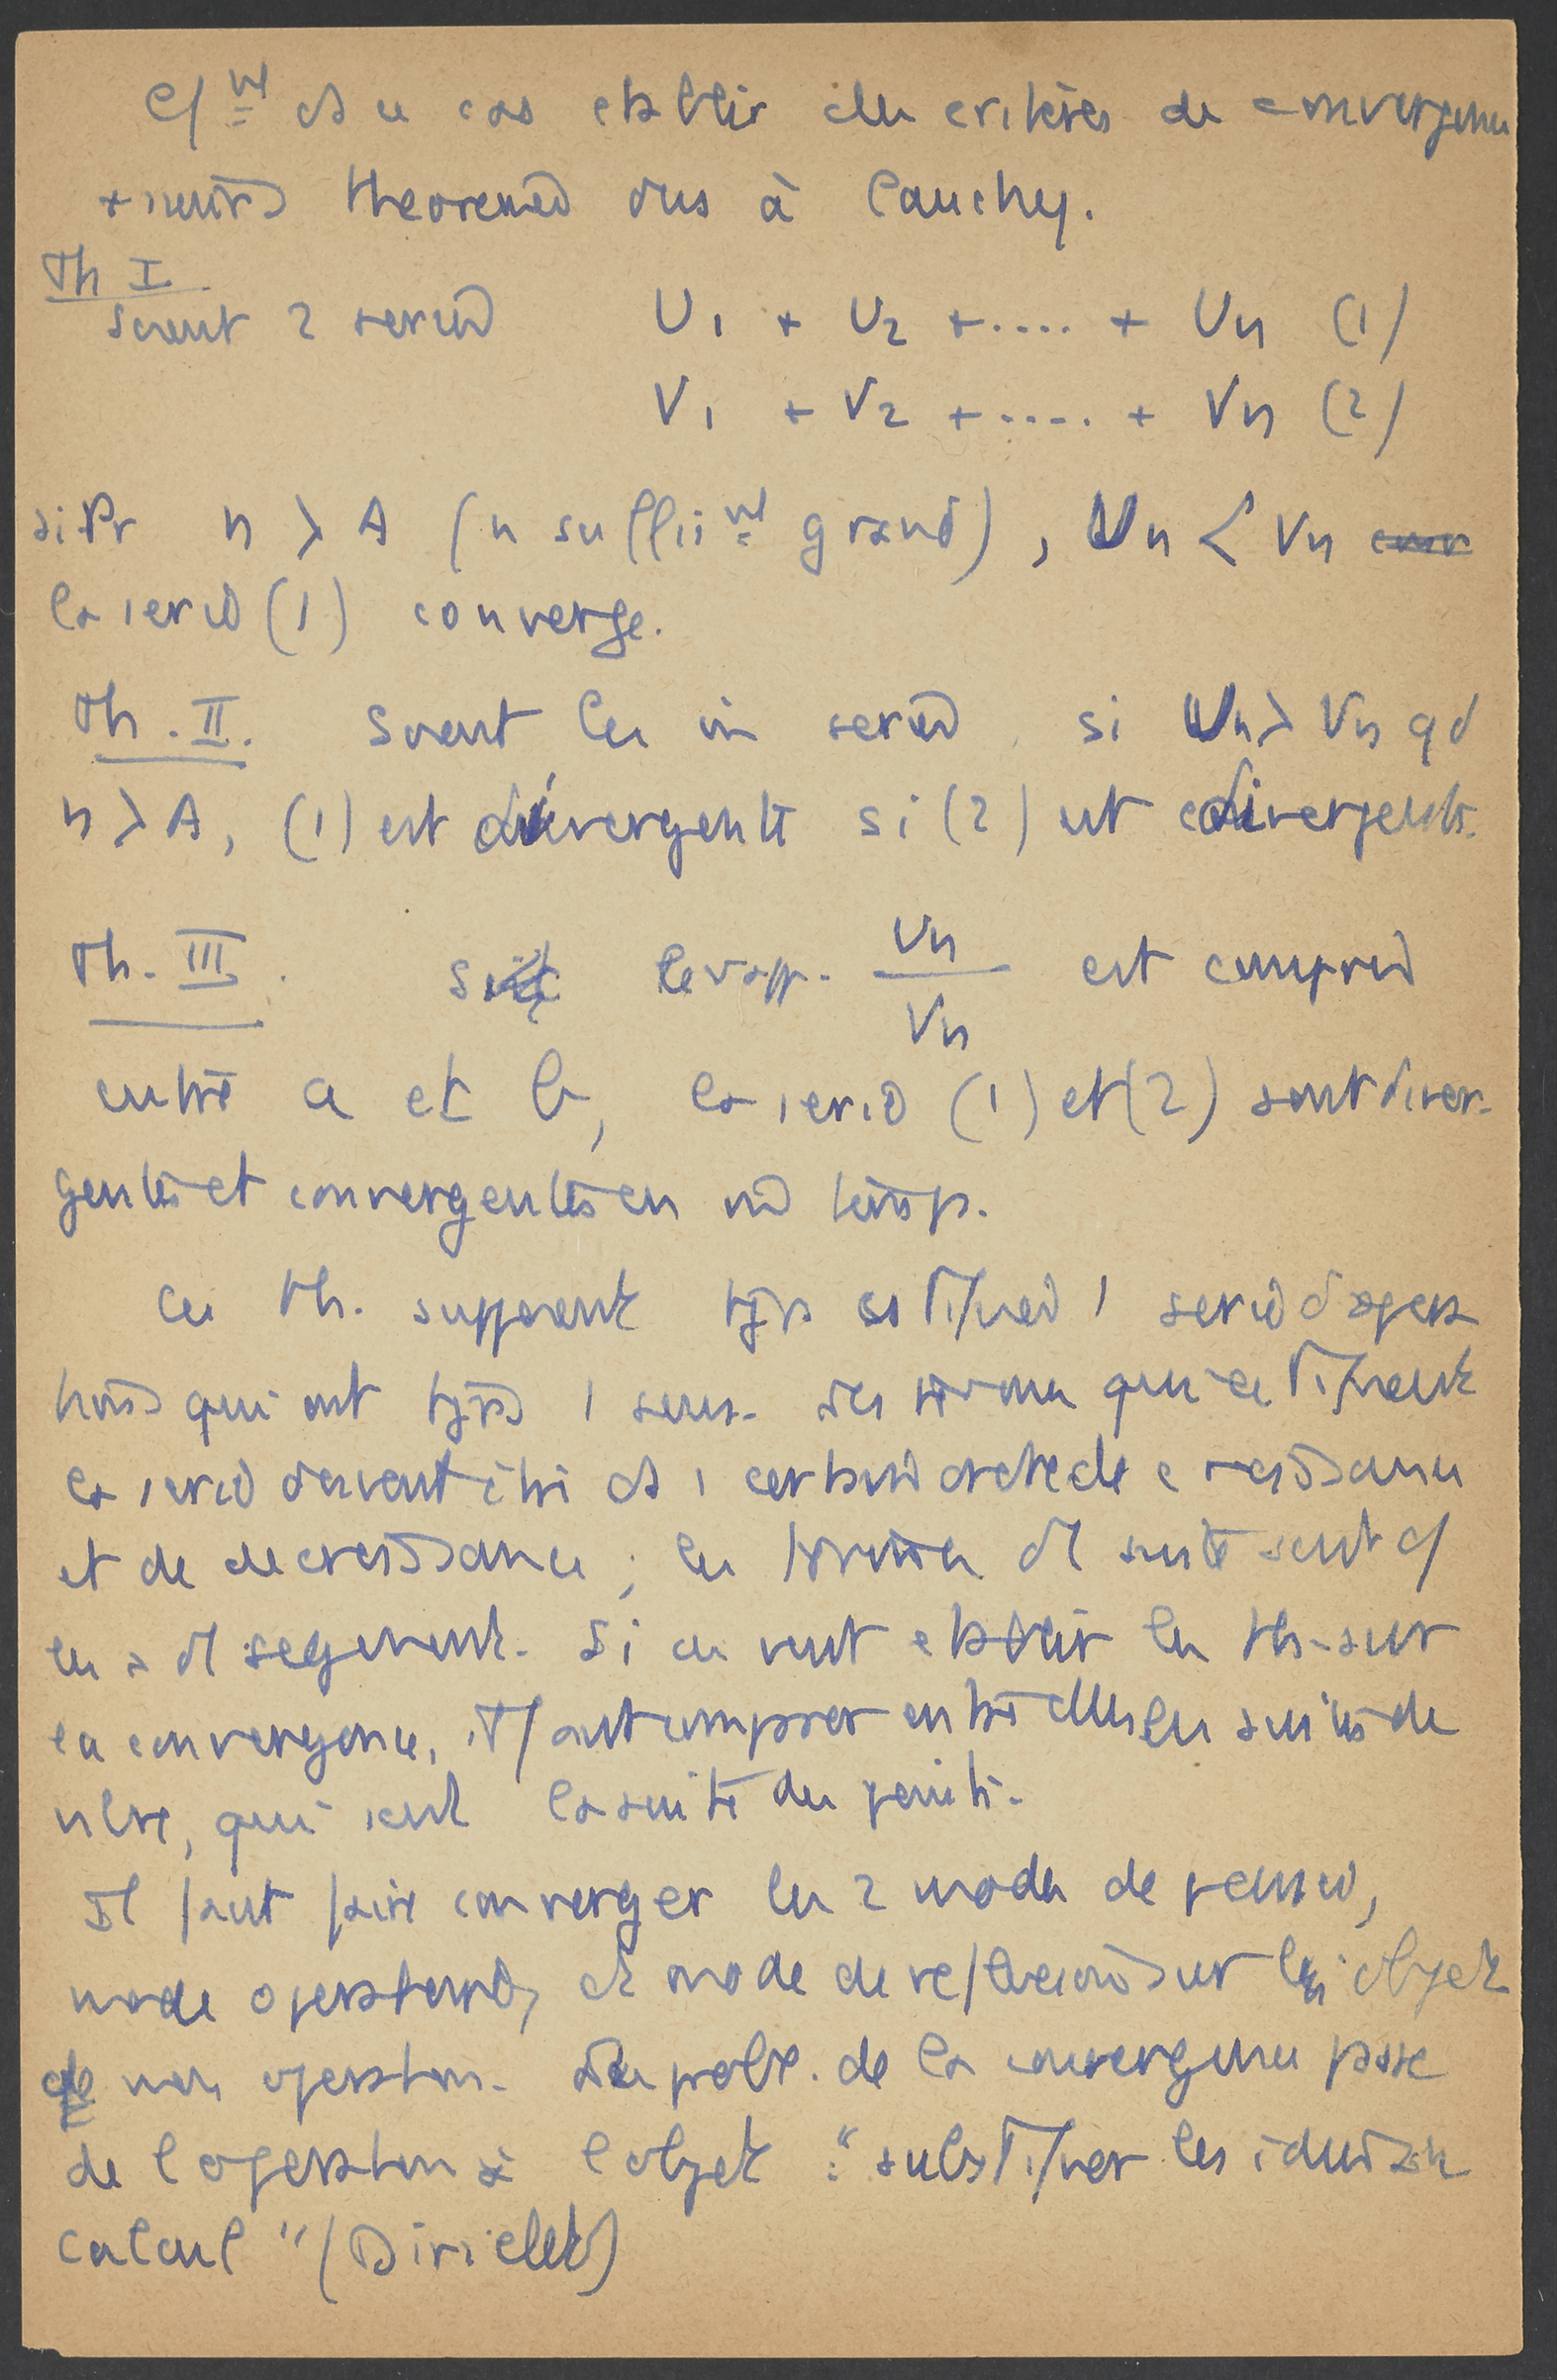 c/ mt ds ce cas etablir des critères de convergence
plusieurs theoremes dus à Cauchy.
Th I.
Soient 2 series U1 + U2 + .... + Un (1)
V1 + V2 + ..... + Vn (2)
si pr n > A (n suffis mt grand), Un < Vn
la serie (1) converge.
Th. II. Soient les m series, si Un > Vn qd
n > A, (1) est divergente si (2) est divergente.
Th. III. Si le rapp. Un/Vn est compris
entre a et b, la serie (1) et (2) sont diver-
gentes et convergentes en m temps.
Ces th. supposent tjrs 1 serie d'opera
tions qui ont tjrs 1 sens. des termes que
la serie doivent être ds 1 certain ordre de croissance
et de decroissance ; les termes d1 suite sont c/
les d1 segment. Si on veut etablir les th. sur
la convergence, il faut comparer entre elles les suites de
nbre, qui sont la suite des points.
Il faut faire converger les 2 modes de pensée,
mode operatoire, et mode de reflexion sur les objets
non operation. Le probl. de la convergence passe
de l operation à l objet : "substituer les idées au
calcul" (Dirichlet)